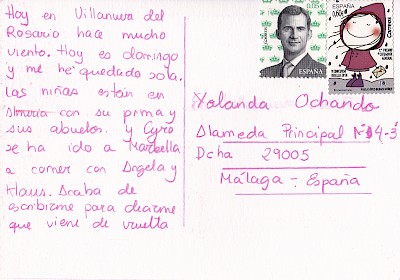 Hoy en Villanueva del
Rosario hace mucho
viento. Hoy es domingo
y me he quedado sola.
Las niñas están en
con su prima y
sus abuelos. y Cyro
se ha ido a Marbella
a comer con Angela y
Klaus. Acaba de
escribirme para decirme
que viene de vuelta
0,05€
ESPAÑA
ESPAÑA
0,60€
Correos
Yolanda Ochando
Alameda Principal
Dcha 29005
Málaga - España